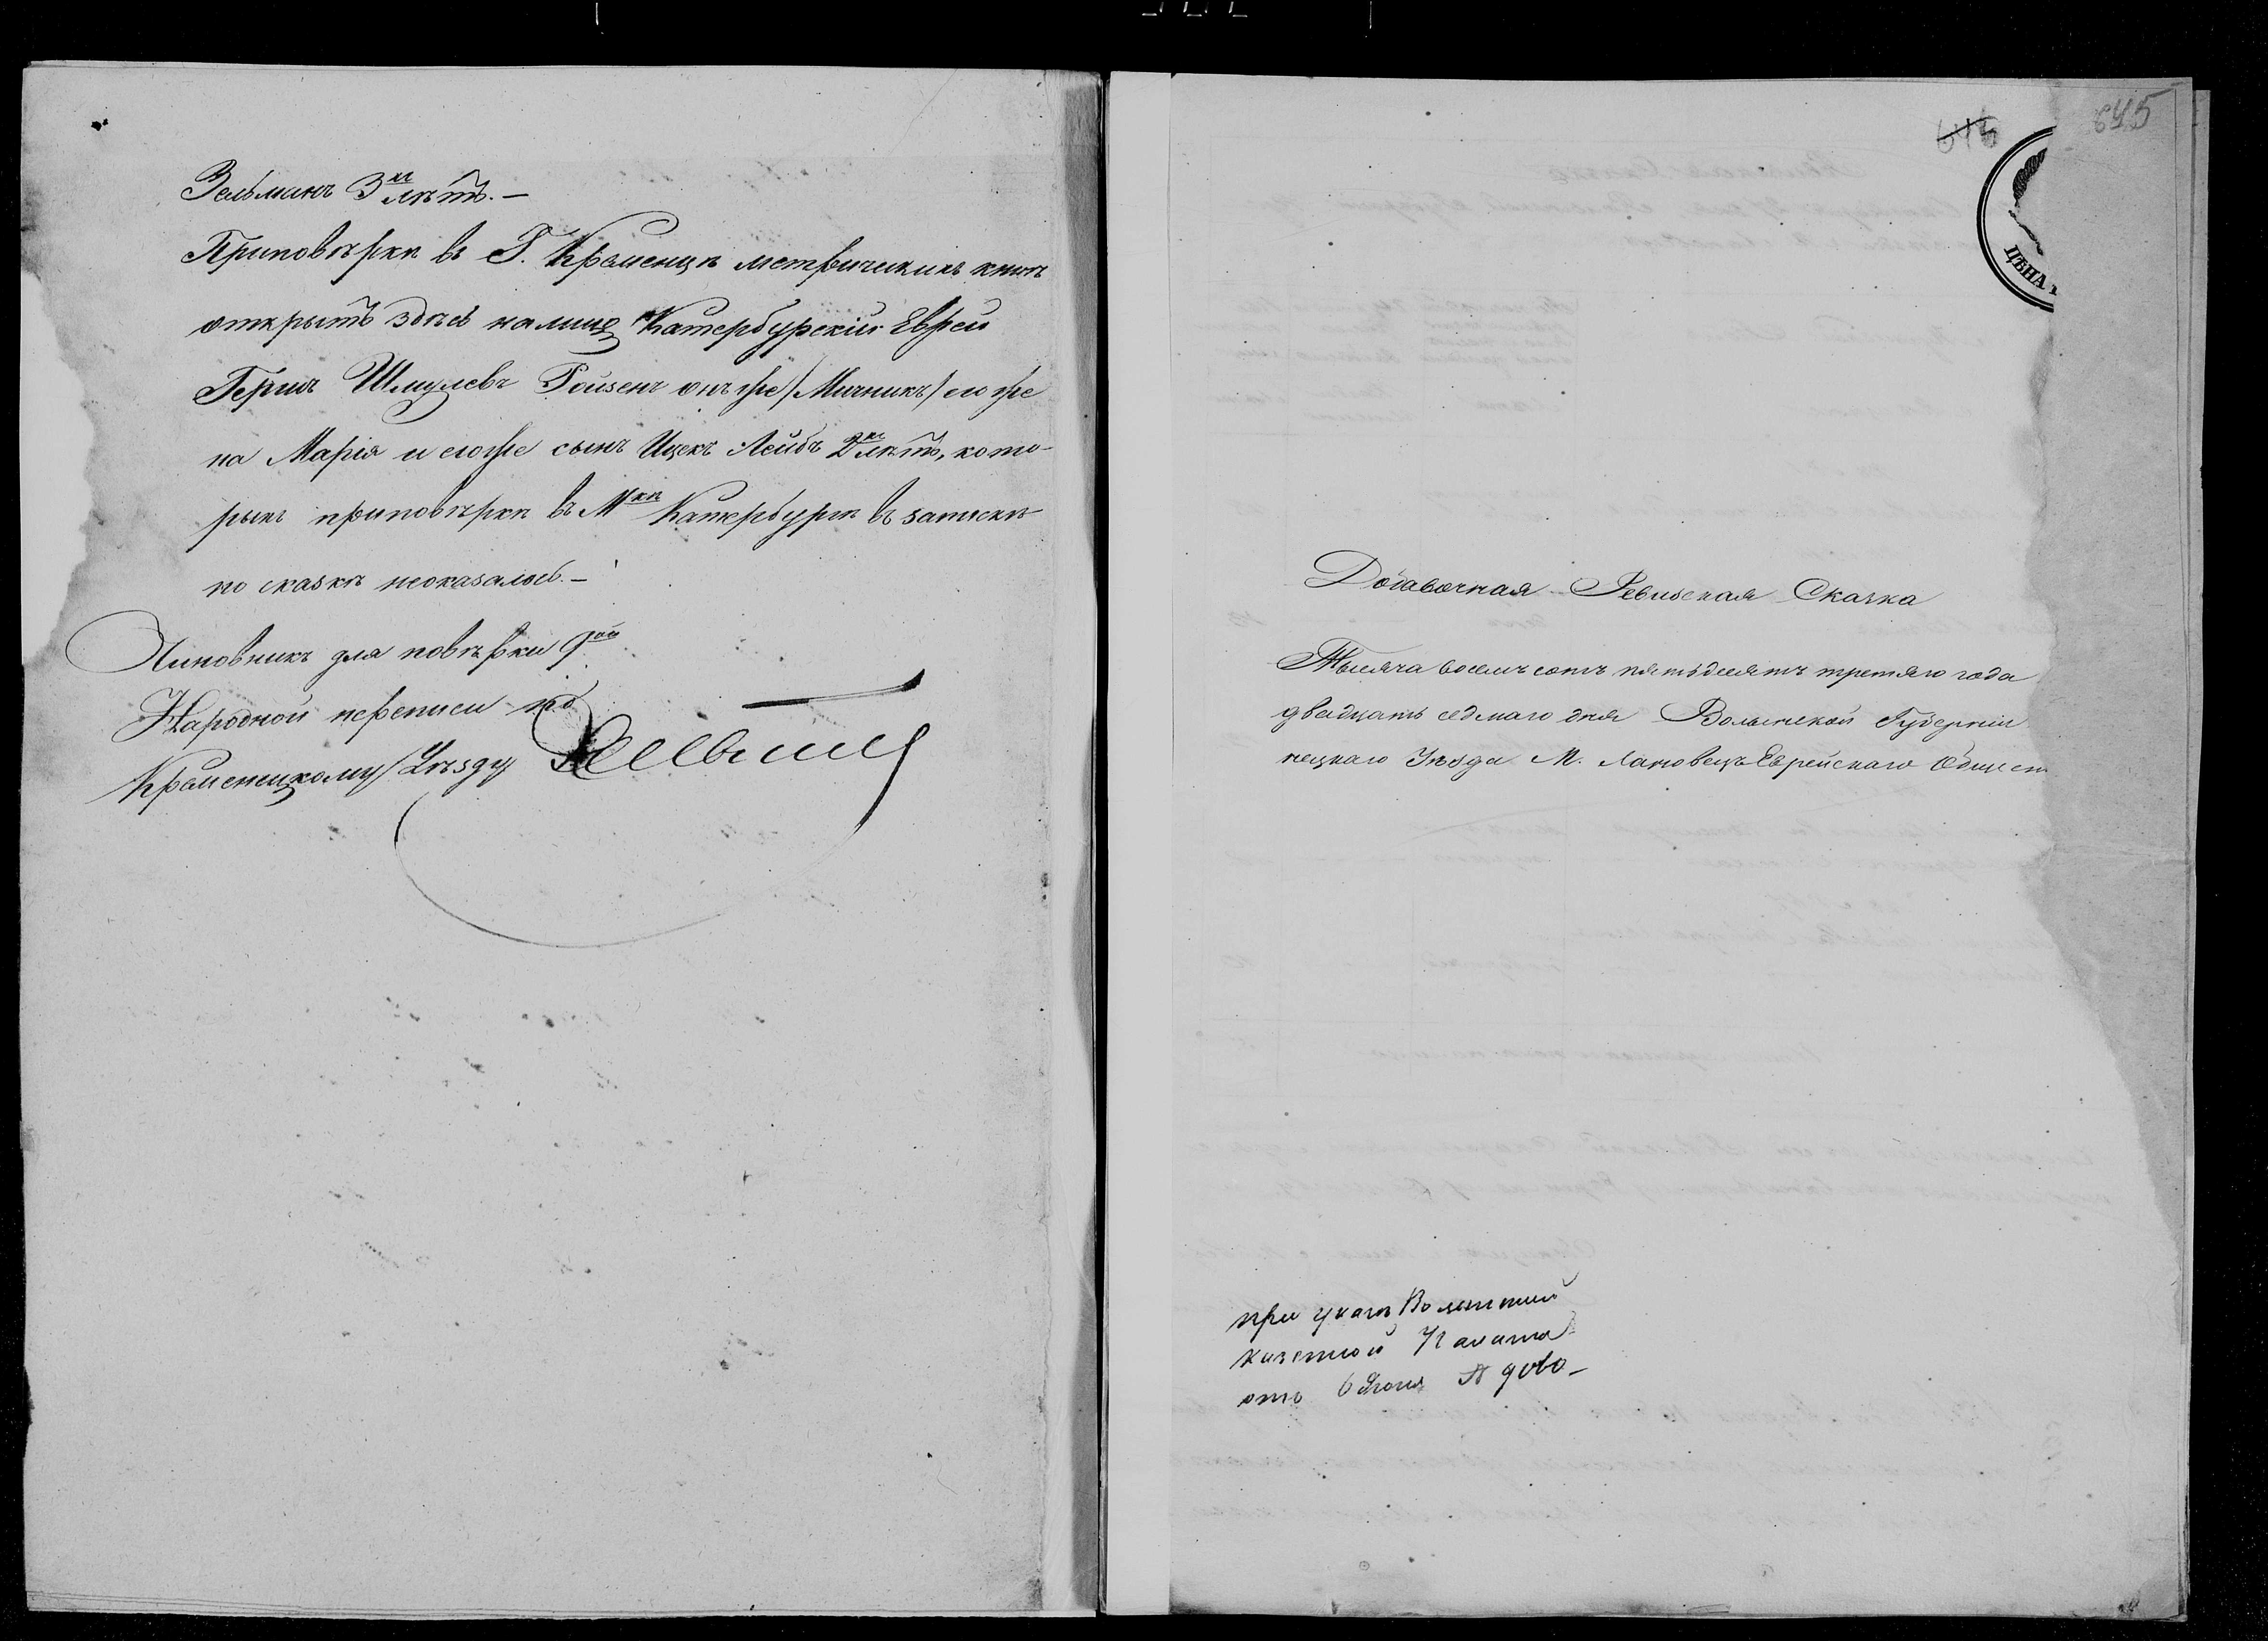 Зельманъ 3хъ лѣтъ.—
Приповѣркѣ въ Г. Кременцѣ метрическихъ книгъ
открытъ здѣсь налице Катербурский Еврей
Гершъ Шмулевъ Ройзенъ онъ же /Мичникъ/ его же
на Марія и его же сынъ Ицекъ Лейбъ 2хъ лѣтъ, кото-
рыхъ приповѣркѣ въ Мкѣ Катербургѣ въ запискѣ
по сказкѣ неоказалось.—
Чиновникъ для повѣрки 9ой
Народной переписи по
Кременецкому Уѣзду
645
645
ЦѢНА
Добавочная Ревизская Сказка
Тысяча восемъ сотъ пятьдесятъ третяго года
двадцать седмаго дня Волынской Губерніи
нецкаго Уѣзда М. Лановецъ Еврейскаго Общест
при указѣ Волынской
казенной Палаты
отъ 6 Іюня №